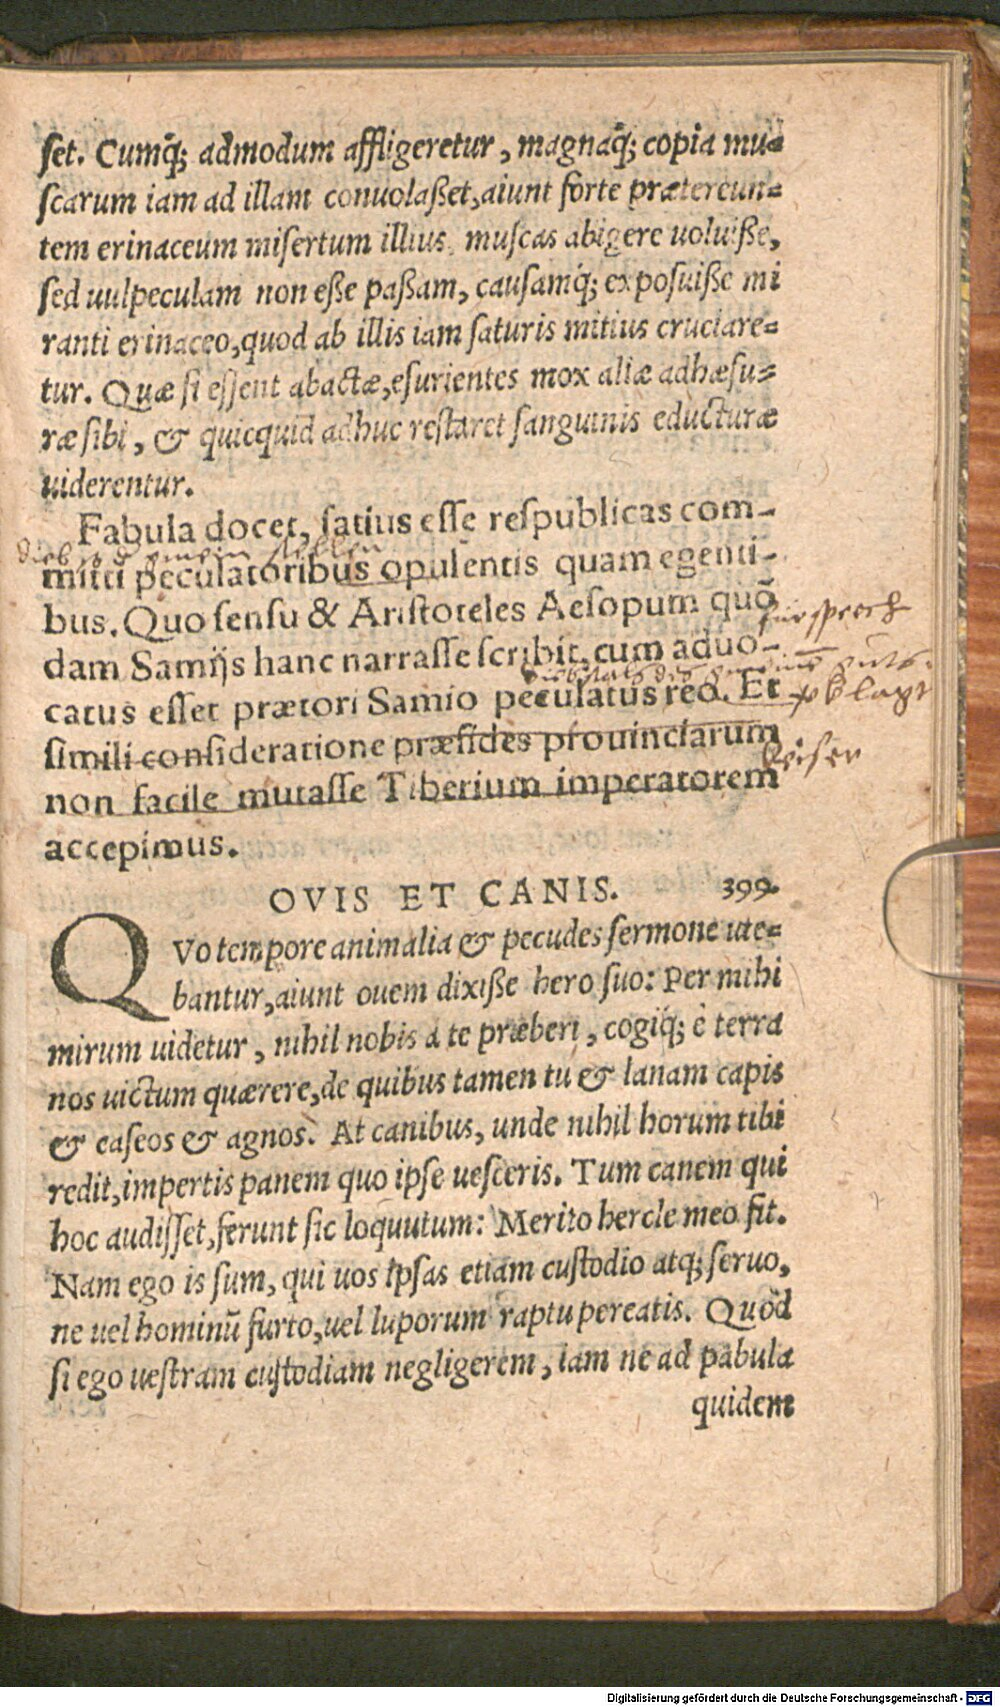 set. Cumq́; admodum affligeretur, magnaq́; copia mu=
scarum iam ad illam conuolaßet, aiunt forte prætereun=
tem erinaceum misertum illius, muscas abigere uoluiße,
sed uulpeculam non eße paßam, causamq́; exposuiße mi
ranti erinaceo, quod ab illis iam saturis mitius cruciare=
tur. Quæ si essent abactæ, esurientes mox aliæ adhæsu=
ræ sibi, & quicquid adhuc restaret sanguinis educturæ
uiderentur.
Fabula docet, satius esse respublicas com-
mitti peculatoribus opulentis quam egenti-
bus. Quo sensu & Aristoteles Aesopum quō
fürsprech
dam Samijs hanc narrasse scribit, cum aduo-
catus esset prætori Samio peculatus reo. Et
simili consideratione præsides prouinciarum
keiser
non facile mutasse Tiberium imperatorem
accepimus.
OVIS ET CANIS. 399.
QVo tempore animalia & pecudes sermone ute=
bantur, aiunt ouem dixiße hero suo: Per mihi
mirum uidetur, nihil nobis à te præberi, cogiq́; è terra
nos uictum quærere, de quibus tamen tu & lanam capis
& caseos & agnos. At canibus, unde nihil horum tibi
redit, impertis panem quo ipse uesceris. Tum canem qui
hoc audisset, ferunt sic loquutum: Merito hercle meo fit.
Nam ego is sum, qui uos ipsas etiam custodio atq; seruo,
ne uel hominū furto, uel luporum raptu pereatis. Quòd
si ego uestram custodiam negligerem, iam ne ad pabula
quidem
Digitalisierung gefördert durch die Deutsche Forschungsgemeinschaft - DFG